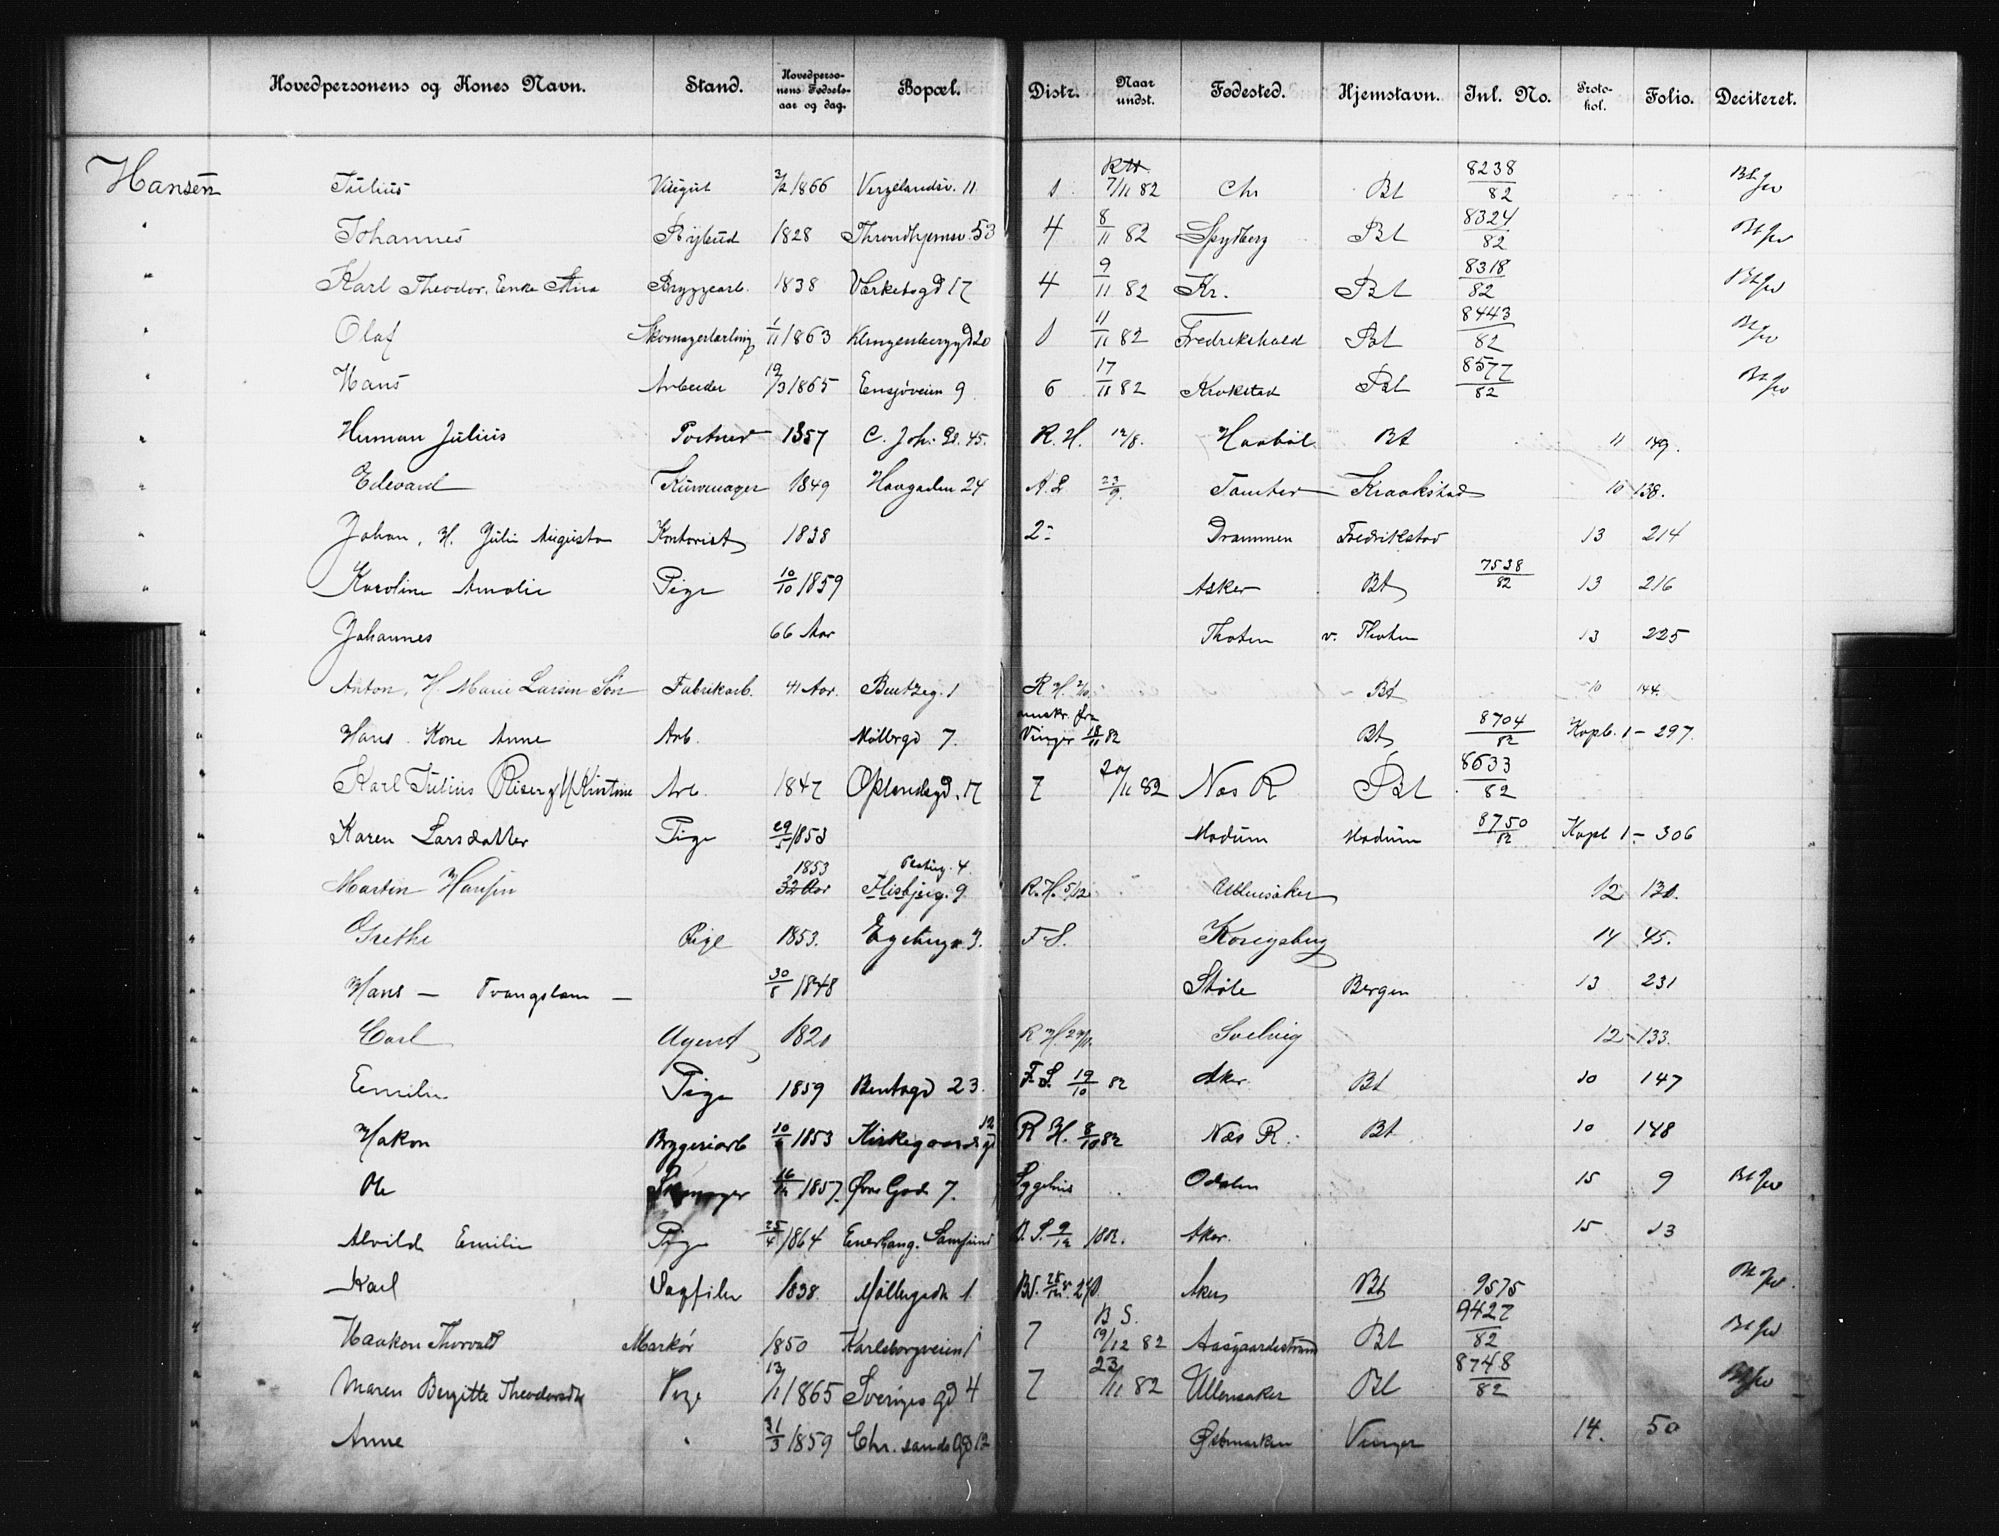 Hovedpersonens og Kones Navn. Stand. Hovedpersonens Fødselsaar og dag. Bopæl. Distr. Naar undst. Fødested. Hjemstavn. Inl. No. Protokol. Folio. Deciteret.
Hansen Julius 1866 11 1 7/11 82 Chr Bt 8238/82
" Johannes 1828 Throndhjemsv. 53 4 8/11 82 Spydberg Bt 8324/82
" Karl Theodor, Enke Bryggearb. 1838 Værketsgd 17 4 9/11 82 Kr. Bt 8318/82
" Olaf Skomagerlærling 1/11 1863 Klingenberggd 20 1 11/11 82 Fredrikshald Bt 8443/82
" Hans Arbeider 19/3 1865 Ensjøveien 9 6 17/11 82 Krokstad Bt 8577/82
" Herman Julius Portner 1857 C. Joh. G. 45. R. H. 12/8. Haabøl Bt 11 149.
" Edevard Kurvmager 1849 Havgaden 24 A. L 23/9. Tomter Kraakstad 10 138.
" Johan, H. Julie Augusta Kontorist 1838 2 Drammen Fredrikstad 13 214
" Karoline Amalie Pige 10/10 1859 Asker Bt 7538/82 13 216
" Johannes 66 Aar Thoten v. Thoten 13 225
" Anton, H. Marie Larsen Søn Fabrikarb. 41 Aar. Bentzeg. 1 R H. Bt 10 144.
" Hans. Kone Anne Arb. Møllergd 7. omskr. fra Vinger 18/11 82 Bt 8704/82 Kopb. 1 - 297.
" Karl Julius Riserg H Kirstine Arb. 1847 Oplandsgd. 17 7 20/11 82 Næs R Bt 8633/82
" Karen Larsdatter Pige 29/5 1853 Modum Modum 8750/82 Kopb 1 - 306
" Martin Hansen 1853 32 Aar 4 9. R. H. 5/12 Ullensaker 12 130.
" Grethe Pige 1853. 3. F. S. Kongsberg 14 45.
" Hans - Tvangslem - 30/8 1848 Støle Bergen 13 231
" Carl Agent 1820 R H. Svelvig 12 - 133.
" Emilie Pige 1859 Bentsgd 23. F. S. 19/10 82 Aker. Bt 10 147
" Hakon Bryggeriarb 1853 Kirkegaardsgd 12 R H. 8/10 82 Næs R. Bt 10 148
" Ole 1857. Øvre Gade 7. Sygehus Odalen 15 9
" Alvilde Emilie Pige 25/4 1864 Enerhaug. B. S. 9/12 1882. Aker. 15 13
" Karl Sagfiler 1838. Møllergade 1. Aker Bt 9575
" Haakon Thorvald Markør 1850 Karlsborgveien 1 7 B S. 19/12 82 Aasgaardstrand Bt 9427/82
" Maren Bergitte Theodorsdtr Pige 13/11 1865 Sveriges gd 4 7 23/11 82 Ullensaker Bt 8748/82
" Anne " 31/3 1859 Chr. sands gd 12 Østmarken Vinger 14. 50